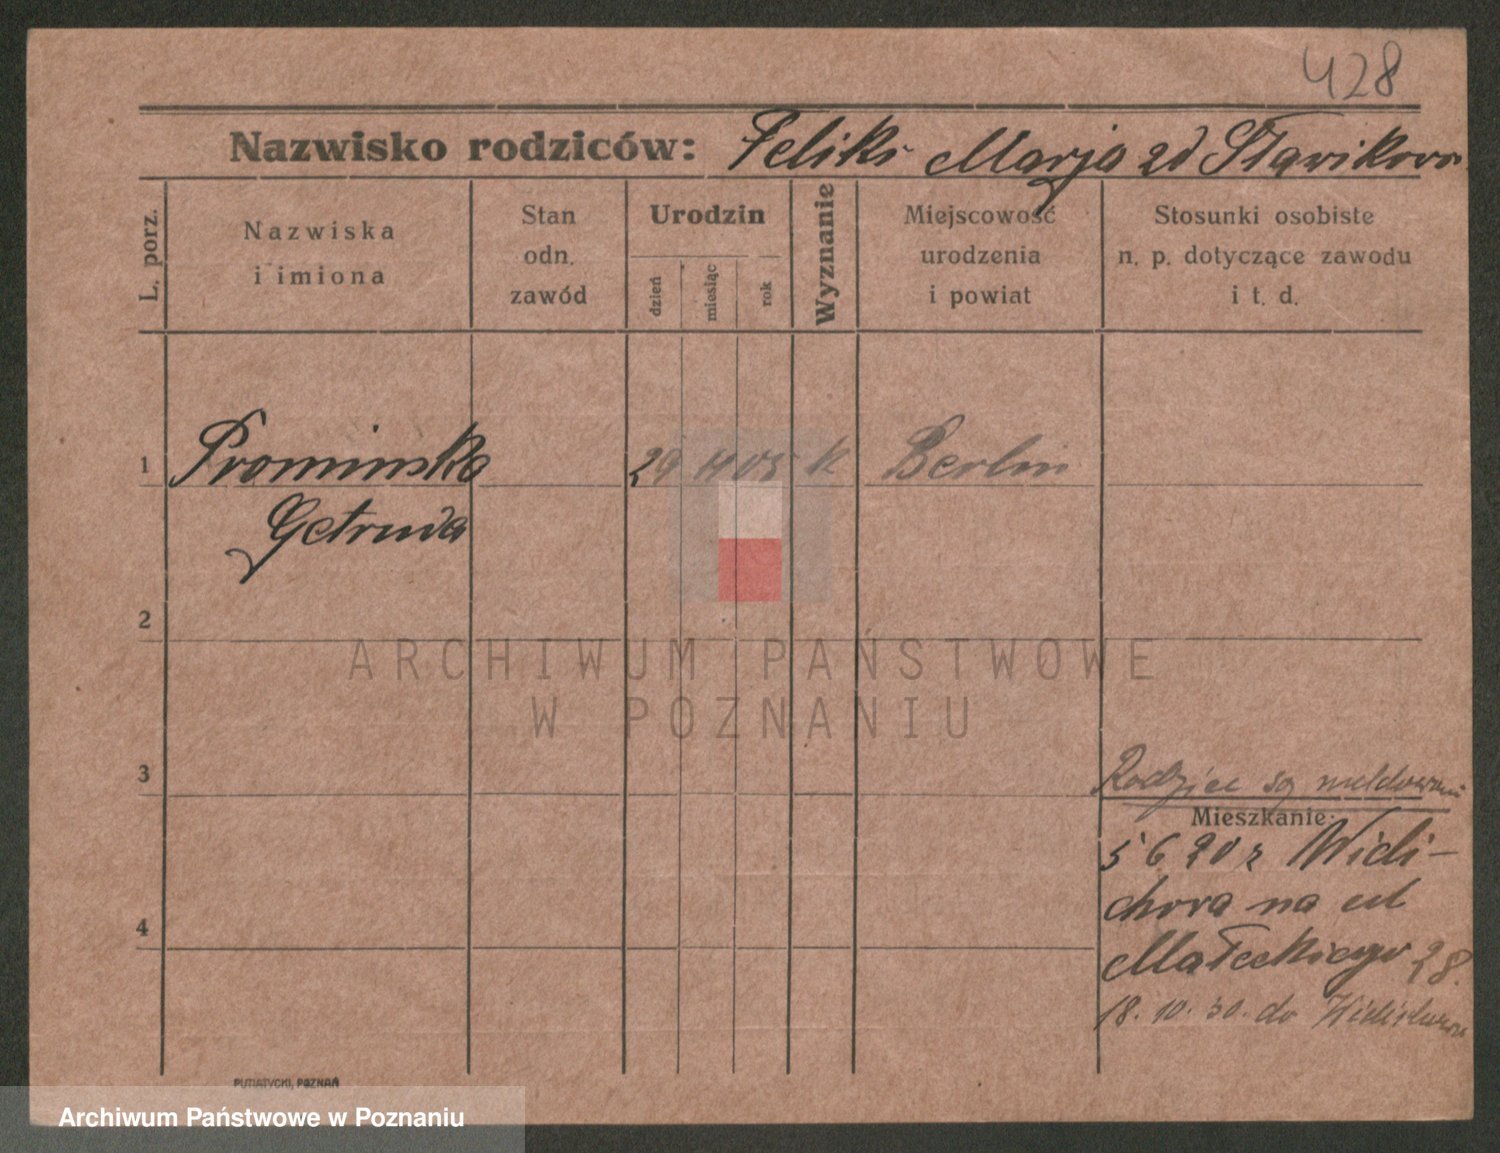 428
Nazwisko rodziców: Feliks Marja zd Sławikowo
L. porz.
Nazwiska
i imiona
Stan
odn.
zawód
Urodzin
dzień
miesiąc
rok
Wyznanie
Miejscowość
urodzenia
i powiat
Stosunki osobiste
n. p. dotyczące zawodu
i t. d.
1 Promińska 29 4 05 k Berlin
Getruda
2
ARCHIWUM PAŃSTWOWE
W POZNANIU
3
Rodzice są meldowani
Mieszkanie:
5 6 20 z Widi-
chova na ul
4
Małeckiego 28.
18. 10. 30. do
PUTIATYCKI, POZNAŃ
Archiwum Państwowe w Poznaniu